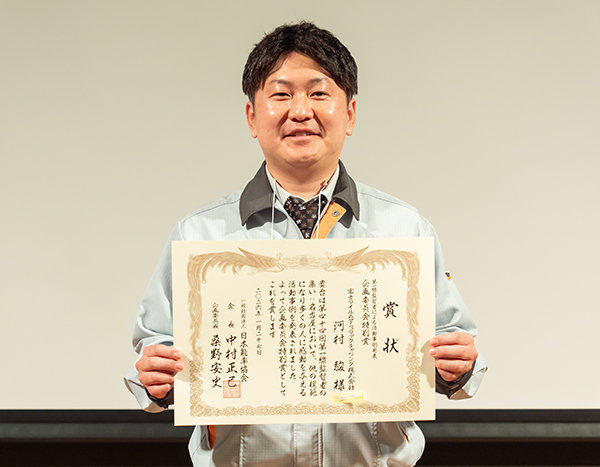 賞状
第一線監督者による活動事例発表
企画委員会特別賞
富士フイルムマニュファクチャリング株式会社
河村 駿 様
貴台は第四十回第一線監督者の
集い:名古屋において、他の模範
になり多くの人に感動を与える
活動事例を発表されました
よって企画委員会特別賞として
これを賞します
二〇二六年一月二十七日
一般社団法人 日本能率協会
会長 中村正己
企画委員長 桑野安史